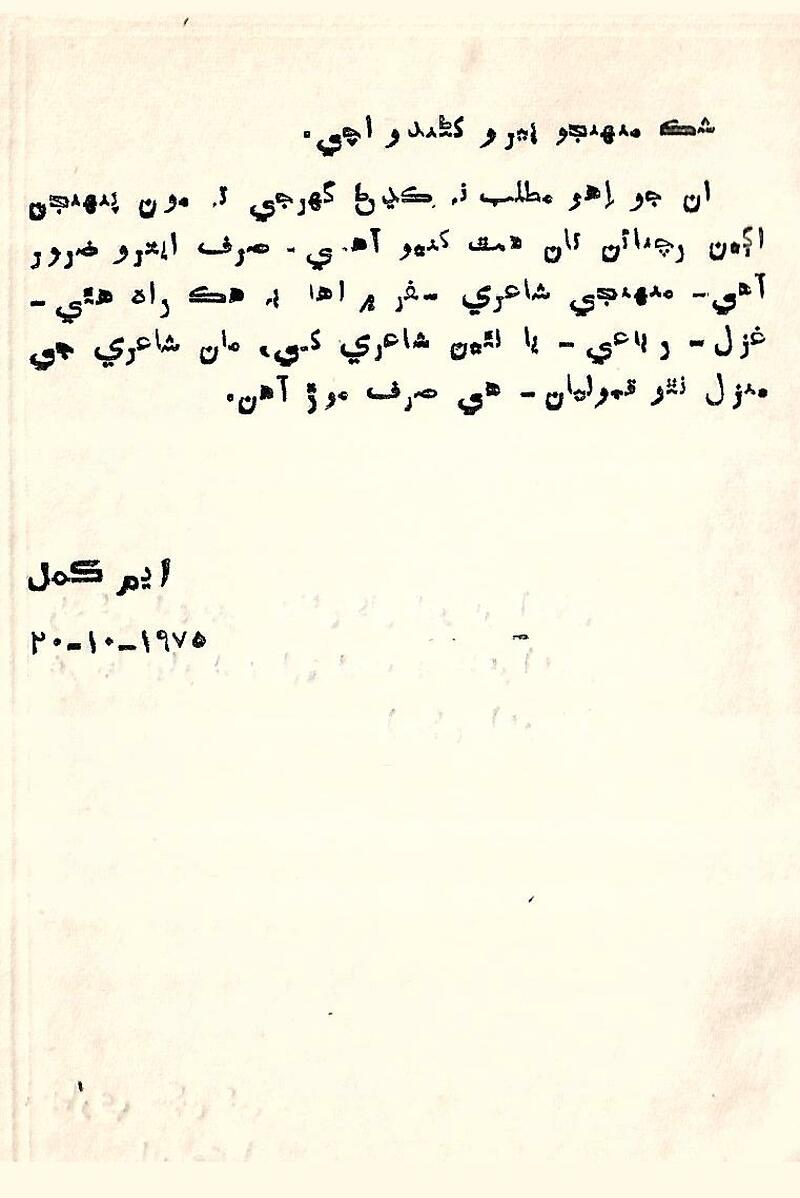 شڪ منهنجو پيرو کڻندو اچي.
ان جو اِهو مطلب نہ ڪڍڻ گهرجي تہ مون پنهنجن
اڳين رچنائن کان هٿ کنيو آهي - صرف ايترو ضرور
آهي - منهنجي شاعري سفر ۾ اها بہ هڪ راھ هئي -
غزل - رباعي - يا نئين شاعري کي، مان شاعري جي
منزل نٿو قبوليان - هي صرف موڙ آهن.
ايم ڪمل
٢٠-١٠-١٩٧٥